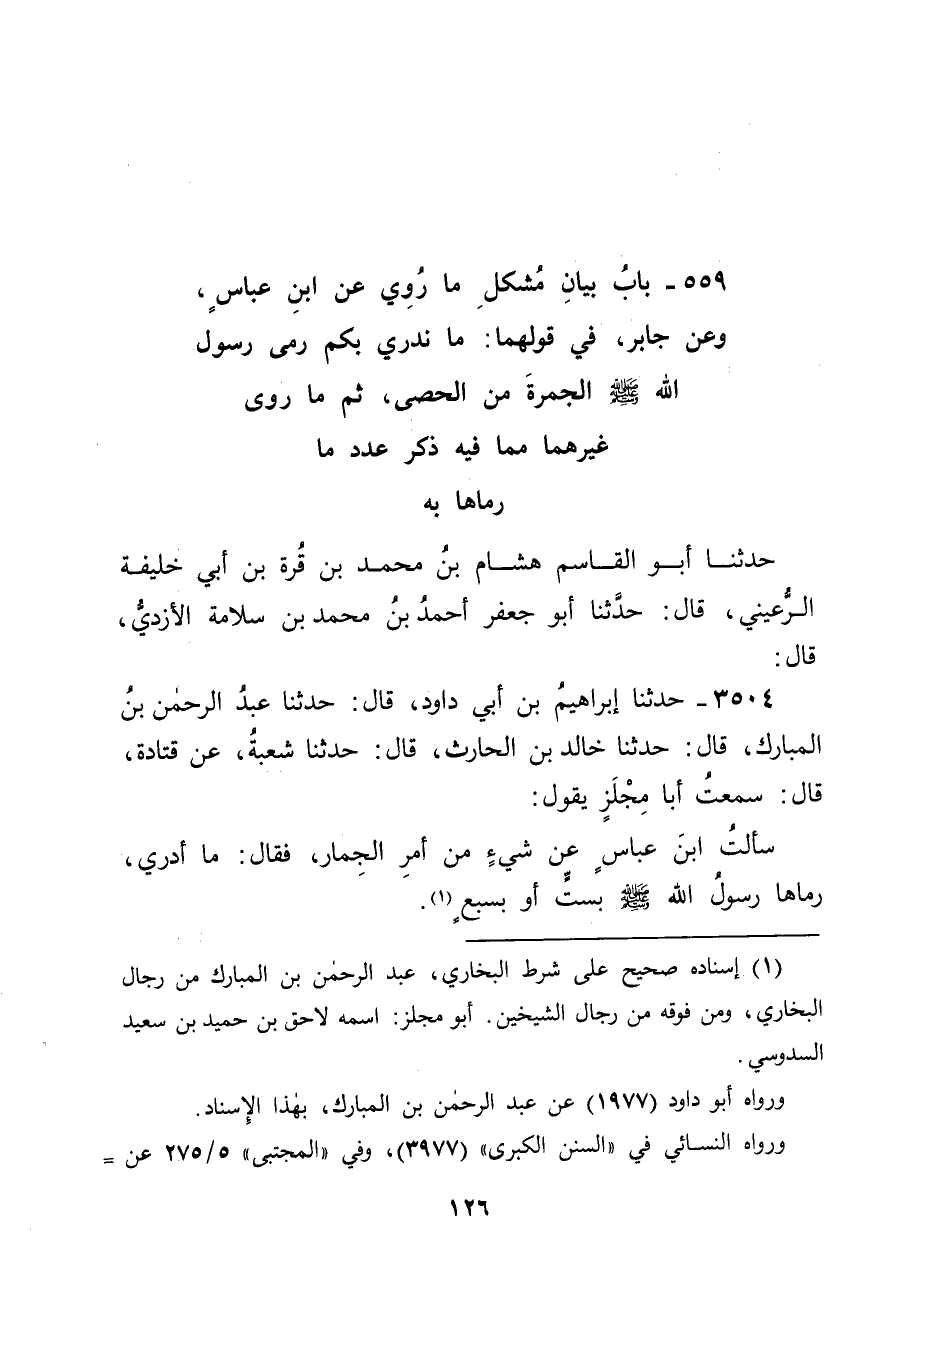 ٥٥٩ ـ بابُ بيانِ مُشكلِ ما رُوِي عن ابنِ عباسٍ،
وعن جابر، في قولهما: ما ندري بكم رمى رسول
الله ﷺ الجمرةَ من الحصى، ثم ما روى
غيرهما مما فيه ذكر عدد ما
رماها به
حدثنا أبو القاسم هشام بنُ محمد بن قُرة بن أبي خليفة
الرُّعيني، قال: حدَّثنا أبو جعفر أحمدُ بنُ محمد بن سلامة الأزديُّ،
قال:
٣٥٠٤ ـ حدثنا إبراهيمُ بن أبي داود، قال: حدثنا عبدُ الرحمٰن بنُ
المبارك، قال: حدثنا خالد بن الحارث، قال: حدثنا شعبةُ، عن قتادة،
قال: سمعتُ أبا مِجْلَزٍ يقول:
سألتُ ابنَ عباسٍ عن شيءٍ من أمرِ الجِمار، فقال: ما أدري،
رماها رسولُ الله ﷺ بستٍّ أو بسبعٍ(١).
(١) إسناده صحيح على شرط البخاري، عبد الرحمٰن بن المبارك من رجال
البخاري، ومن فوقه من رجال الشيخين. أبو مجلز: اسمه لاحق بن حميد بن سعيد
السدوسي.
ورواه أبو داود (١٩٧٧) عن عبد الرحمٰن بن المبارك، بهٰذا الإِسناد.
ورواه النسائي في «السنن الكبرى» (٣٩٧٧)، وفي «المجتبى» ٢٧٥/٥ عن =
١٢٦